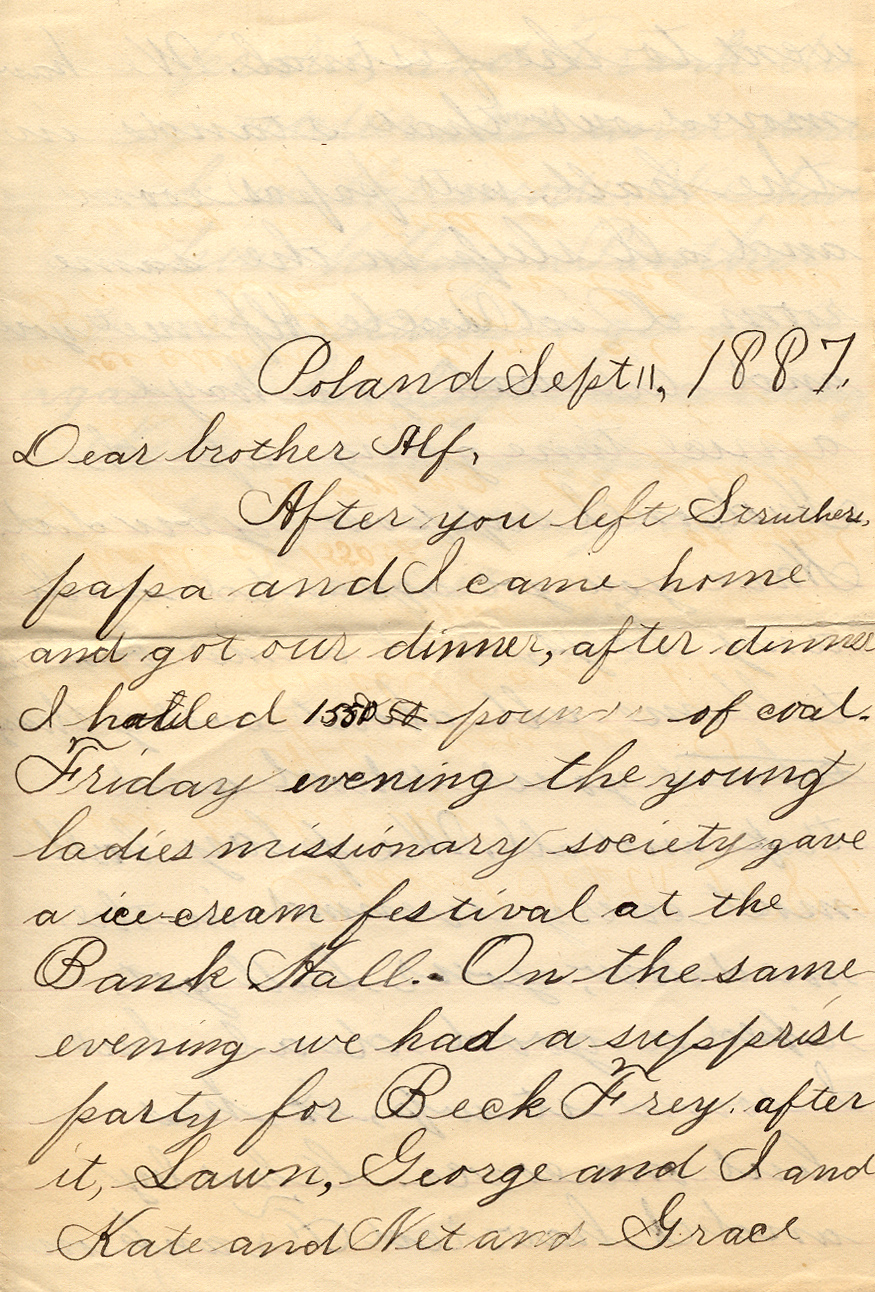 Poland Sept 11, 1887.
Dear brother Alf,
After you left Struthers,
papa and I came home
and got our dinner, after dinner
I hauled 1550 pounds of coal.
Friday evening the young
ladies missionary society gave
a ice-cream festival at the
Bank Hall.- On the same
evening we had a supprise
party for Beck Frey. after
it, Lawn, George and I and
Kate and Net and Grace